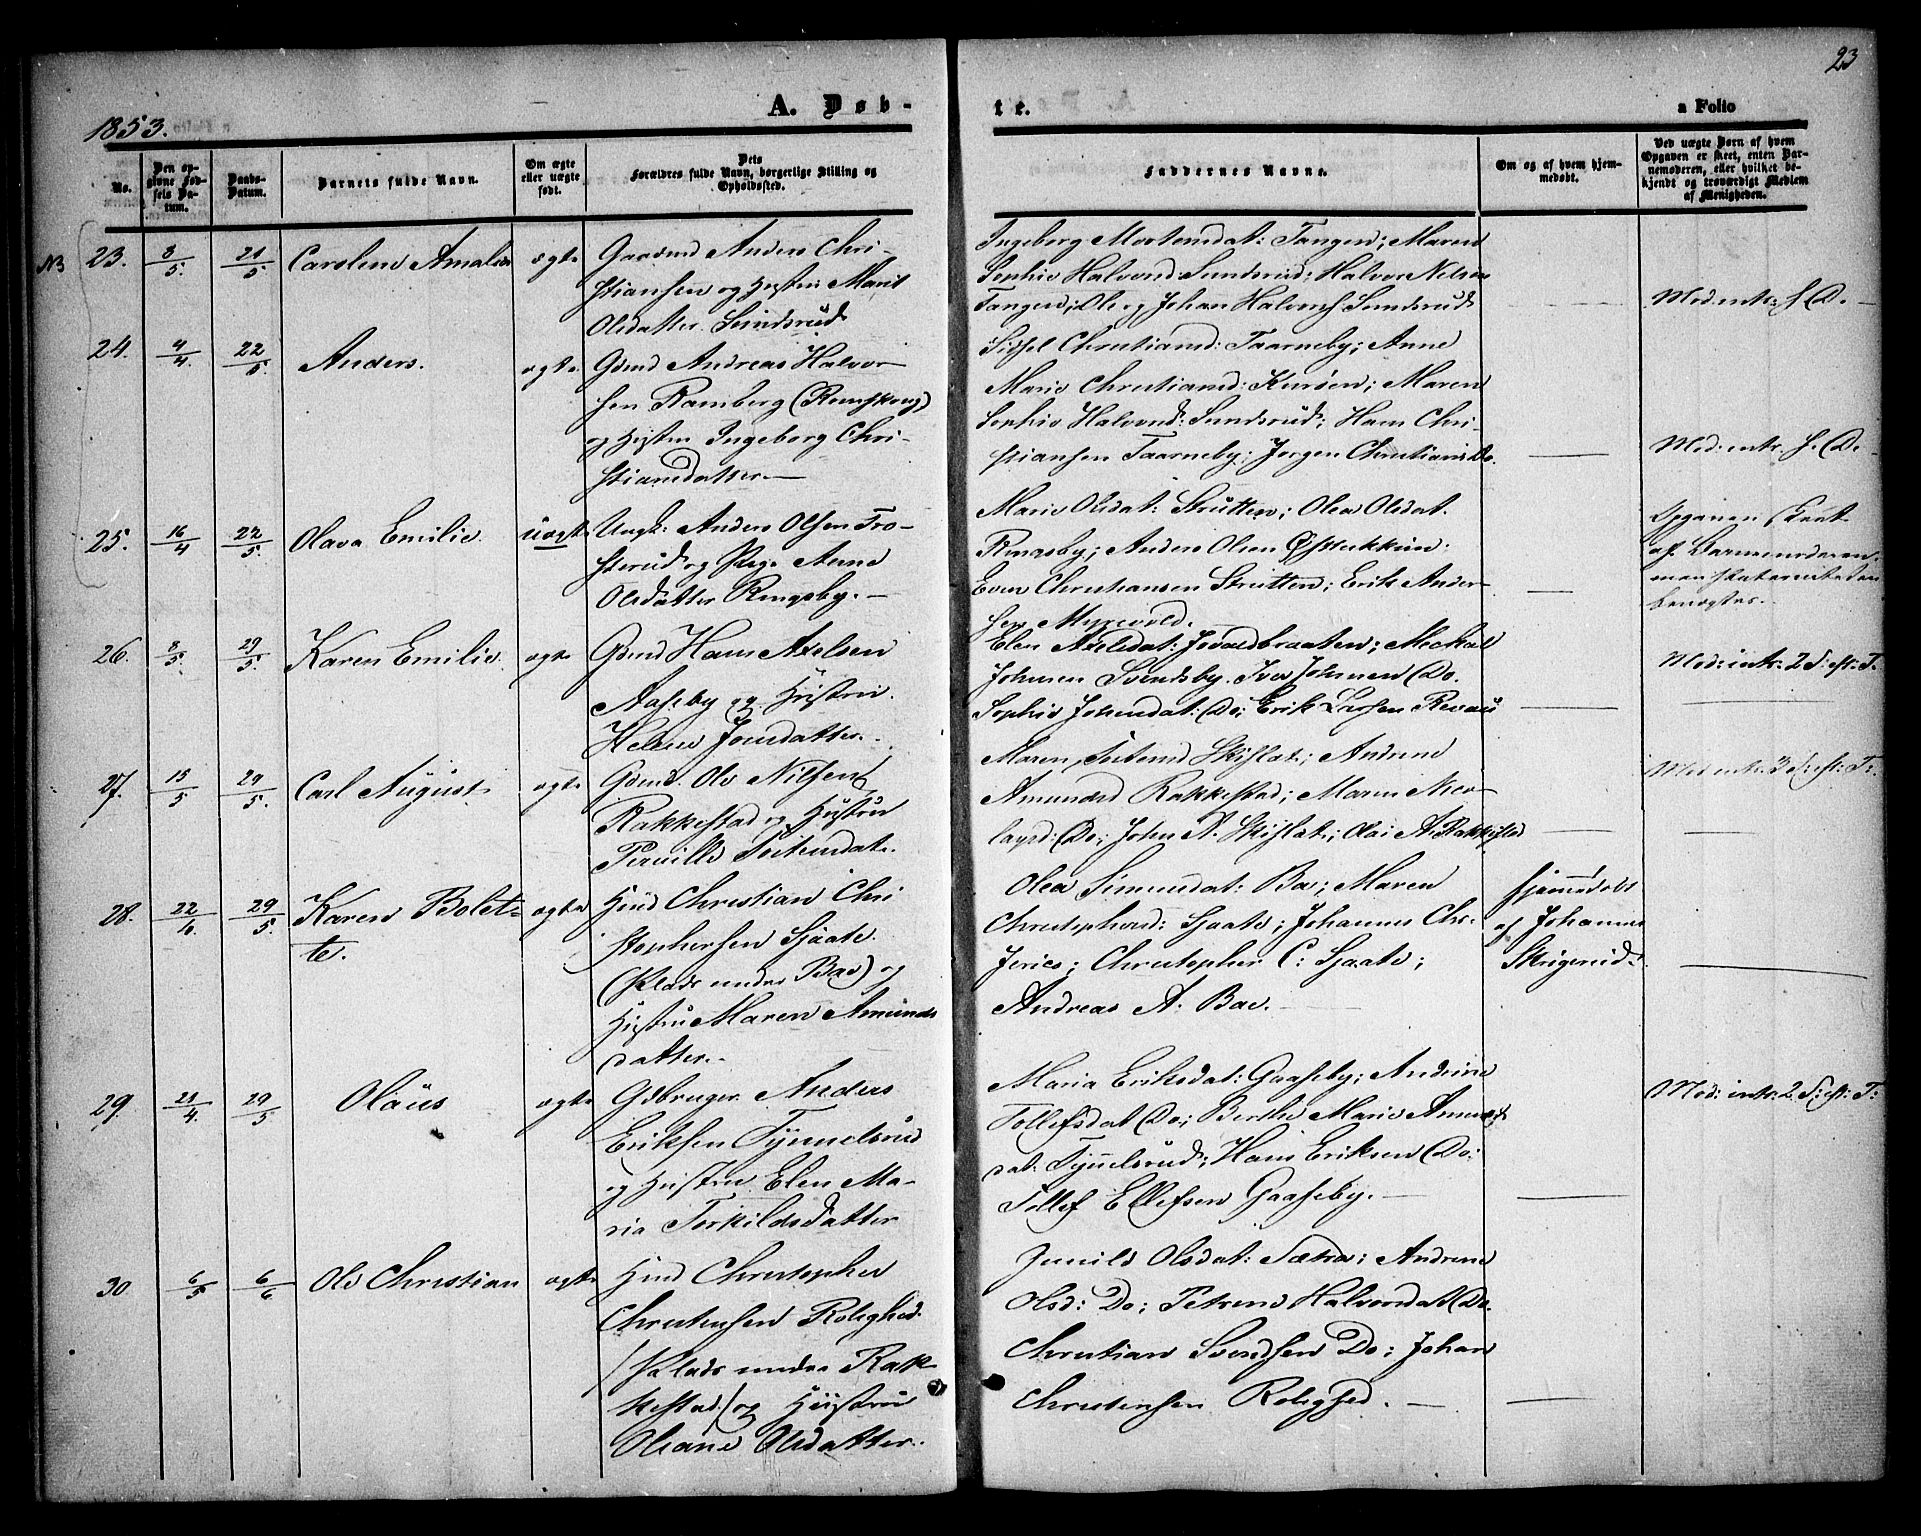 23
1853.
A. Døb-
te.
a Folio
No.
Den op-
givne Fød-
sels Da-
tum.
Daabs-
Datum.
Barnets fulde Navn.
Om ægte
eller uægte
født.
Dets
Forældres fulde Navn, borgerlige Stilling og
Opholdssted.
Faddernes Navne.
Om og af hvem hjem-
medøbt.
Ved uægte Børn af hvem
Opgaven er skeet, enten Bar-
nemoderen, eller hvilket be-
kjendt og troværdigt Medlem
af Menigheden.
NB 23. 8/5. 21/5 Caroline Amalia ægte
Gaardmd Anders Chri-
stiansen og Hustru Marit
Olsdatter Sundsrud
Ingeborg Mortensdat: Tangen; Maren
Sophie Halvorsd: Sundsrud; Halvor Nilsen
Tangen; Ole og Johan Halvorsen Sundsrud
Mod: intr: s. D.
24. 4/4. 22/5 Anders. ægte.
Gdmd Andreas Halvor-
sen Ramberg (Rømskoug)
og Hustru Ingeborg Chri-
stiansdatter.
Sissel Christiansd: Taarneby; Anne
Marie Christiansd: Kursøen; Maren
Sophie Halvorsd: Sundsrud; Hans Chri-
stiansen Taarneby; Jørgen Christians Do.
Mod: intr. s. D.
25. 16/4 22/5. Olava Emilie. uægte
Ungk: Anders Olsen Tro-
sterud og Pige Anne
Olsdatter Ringsby.
Marie Olsdat: Strutten; Olea Olsdat.
Ringsby; Anders Olsen
Even Christiansen Strutten; Erik Ander-
sen Myrvold.
Opgaven skeet
af Barnemoderen,
benægtes.
26. 8/5. 29/5. Karen Emilie. ægte
Gdmd Hans Axelsen
Aaseby og Hustru
Helene Jonsdatter.
Elen Axelsdat: Jovaldbraaten; Mechael
Johnsen Svendsby. Iver Johnsen Do.
Sophie Johnsdat: Do; Erik Larsen Revau
Mod: intr: 2 S: eft: T.
27. 15/5 29/5. Carl August ægte
Gdmd. Ole Nilsen
Rakkestad og Hustru
Pernille Tostensdat.
Maren Tostensd Skislet; Andrine
Amundsd Rakkestad; Maren Nico-
laysd: Do; John A. Skislet; Olai A. Rakkestad
Mod intr: 3 S: eft: T:
28. 22/6. 29/5. Karen Bolet-
te. ægte
Hmd Christian Chri
stophersen Sjaate.
(Plads under Bae) og
Hustru Maren Amunds
datter.
Olea Simensdat: Bae; Maren
Christophersd: Sjaate; Johannes Chr.
Jerico; Christopher C: Sjaate;
Andreas A. Bae.
Hjemmedøbt
af Johannes
Skrigerud
29. 21/4 29/5 Olaus ægte
Gdbruger Anders
Eriksen Tynnelsrud
og Hustru Elen Ma-
ria Torkildsdatter
Maria Eriksdat: Gaaseby; Andrine
Tollefsdat Do; Berthe Marie Anders
dat. Tynnelsrud; Hans Eriksen Do:
Tollef Ellefsen Gaaseby.
Mod: intr. 2. S: eft: T:
30 6/5 6/6 Ole Christian ægte
Hmd Christopher
Christensen Rolighed.
(Plads under Rak-
kestad) og Hustru
Oleane Olsdatter.
Gunild Olsdat: Sætra; Andrine
Olsd: Do; Petrene Halvorsdat Do.
Christian Svendsen Do; Johan
Christensen Rolighed.